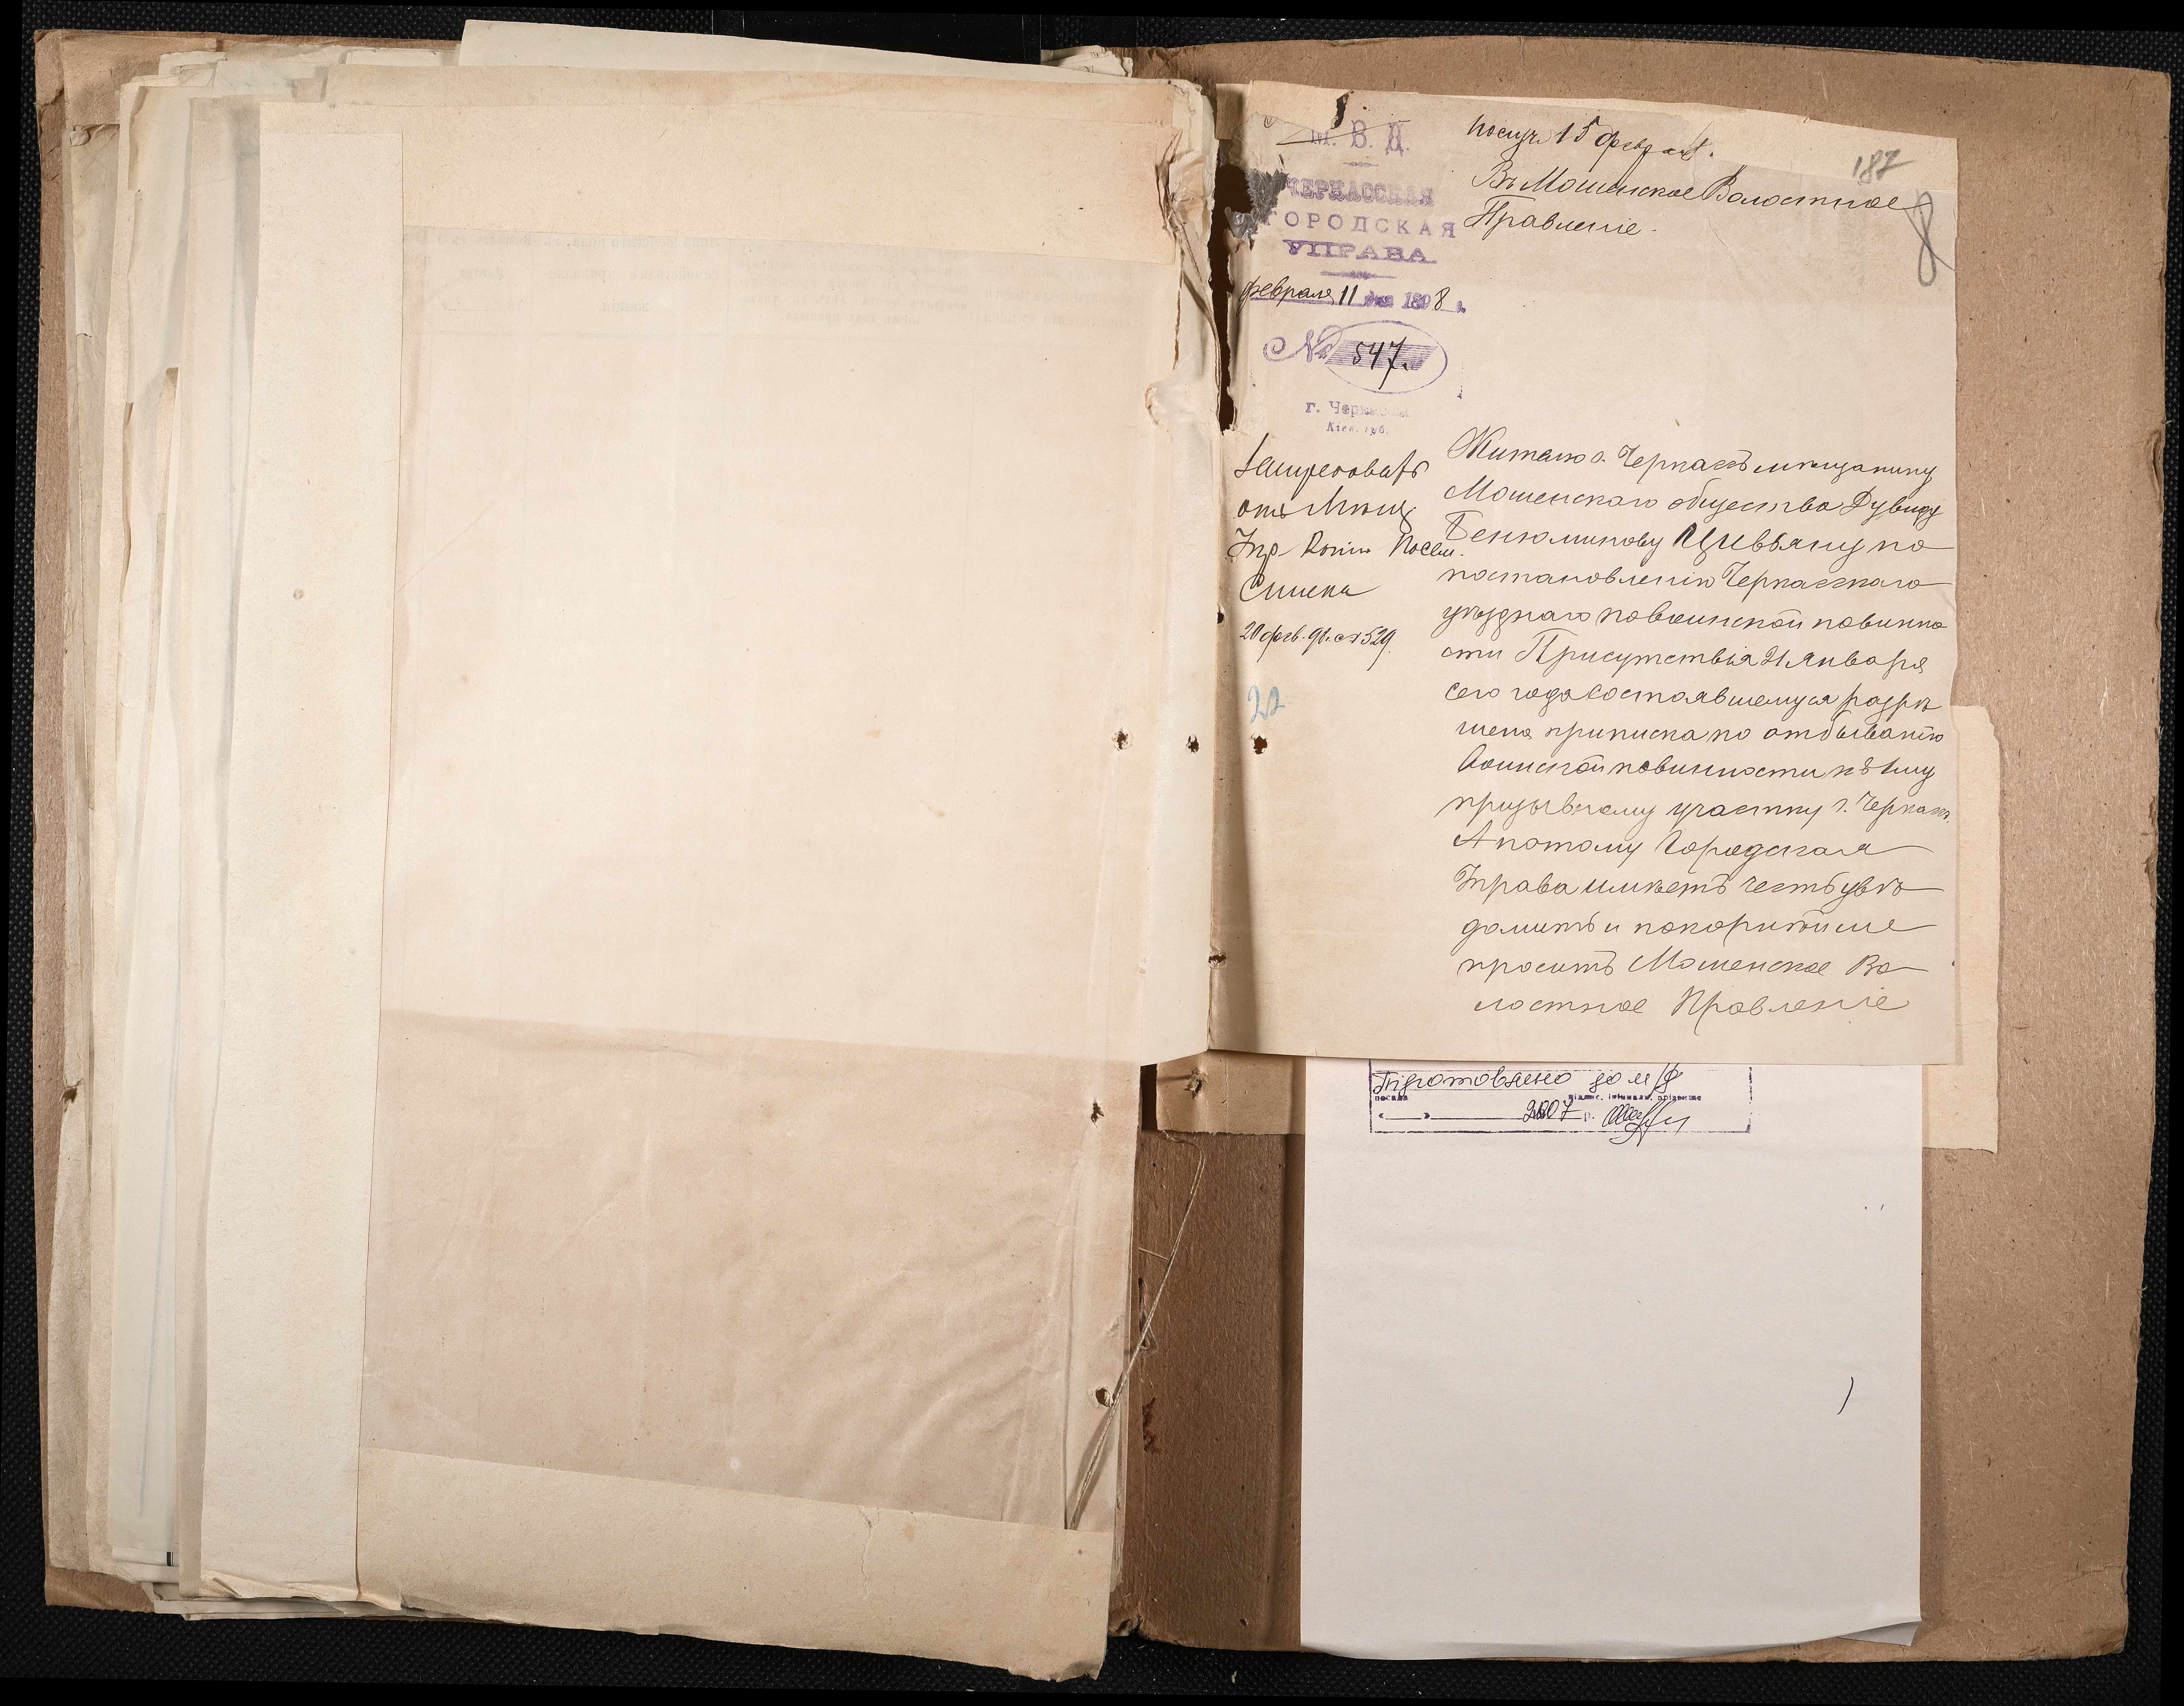 М. В. Д.
ЧЕРКАССКАЯ
ГОРОДСКАЯ
УПРАВА
февраля 11 дня 1898 г.
№ 547.
г. Черкассы
Кіев. губ.
получ 15 февраля.
187
8
Въ Мошенское Волостное
Правленіе.
отъ Мѣщ
Упр
Списка
20 февр. 98. 529
22
Жителю г. Черкассъ мѣщанину
Мошенскаго общества Дувиду
Беньминову Цивьяну по
постановленію Черкасскаго
уѣзднаго по воинской повинно
сти Присутствія 21 Января
сего года состоявшемуся разрѣ
шена приписка по отбыванію
воинской повинности къ 1му
призывному участку г. Черкассъ.
А потому Городская
Управа имѣетъ честь увѣ
домить и покорнѣйше
просить Мошенское Во
лостное Правленіе
посада
підпис, ініціали, прізвище
2007 р.